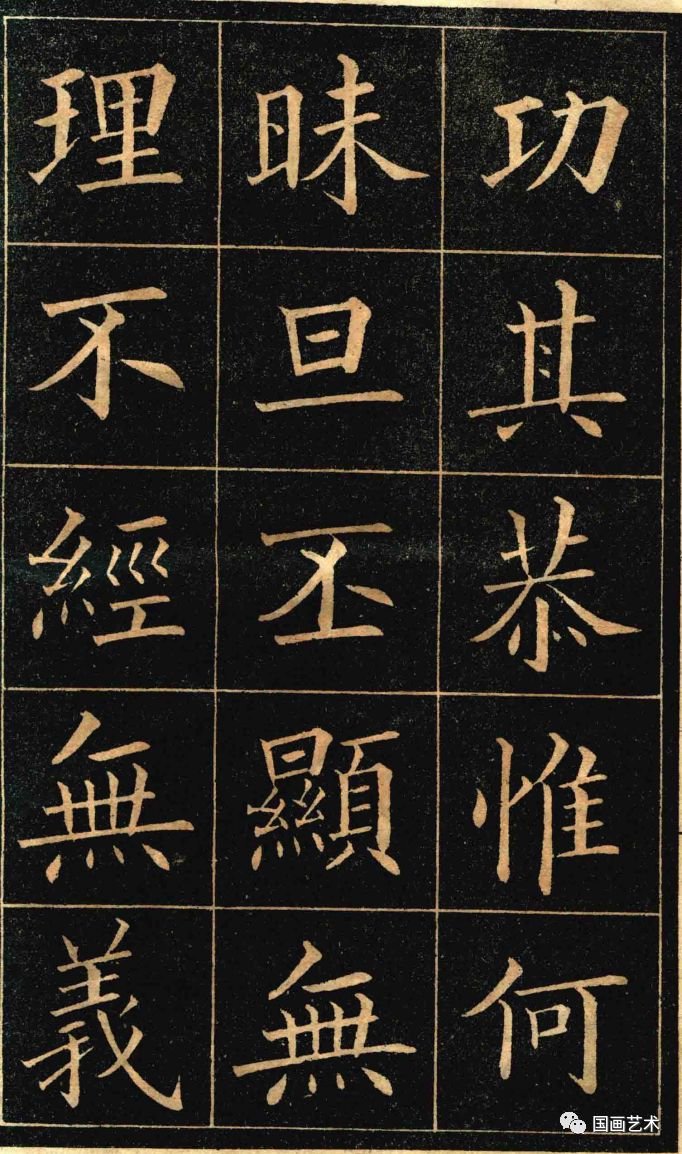 功其恭惟何
昧旦丕顯無
理不經無義
国画艺术